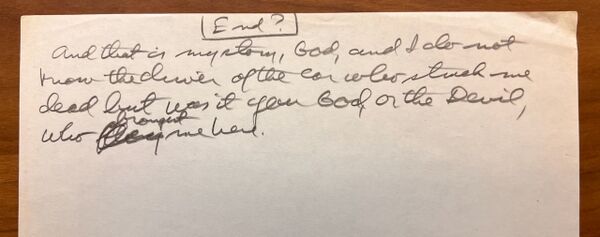 End?
And that is my story, God, and I do not
know the driver of the car who stuck me
dead but was it you God, or the Devil,
who brought me here.